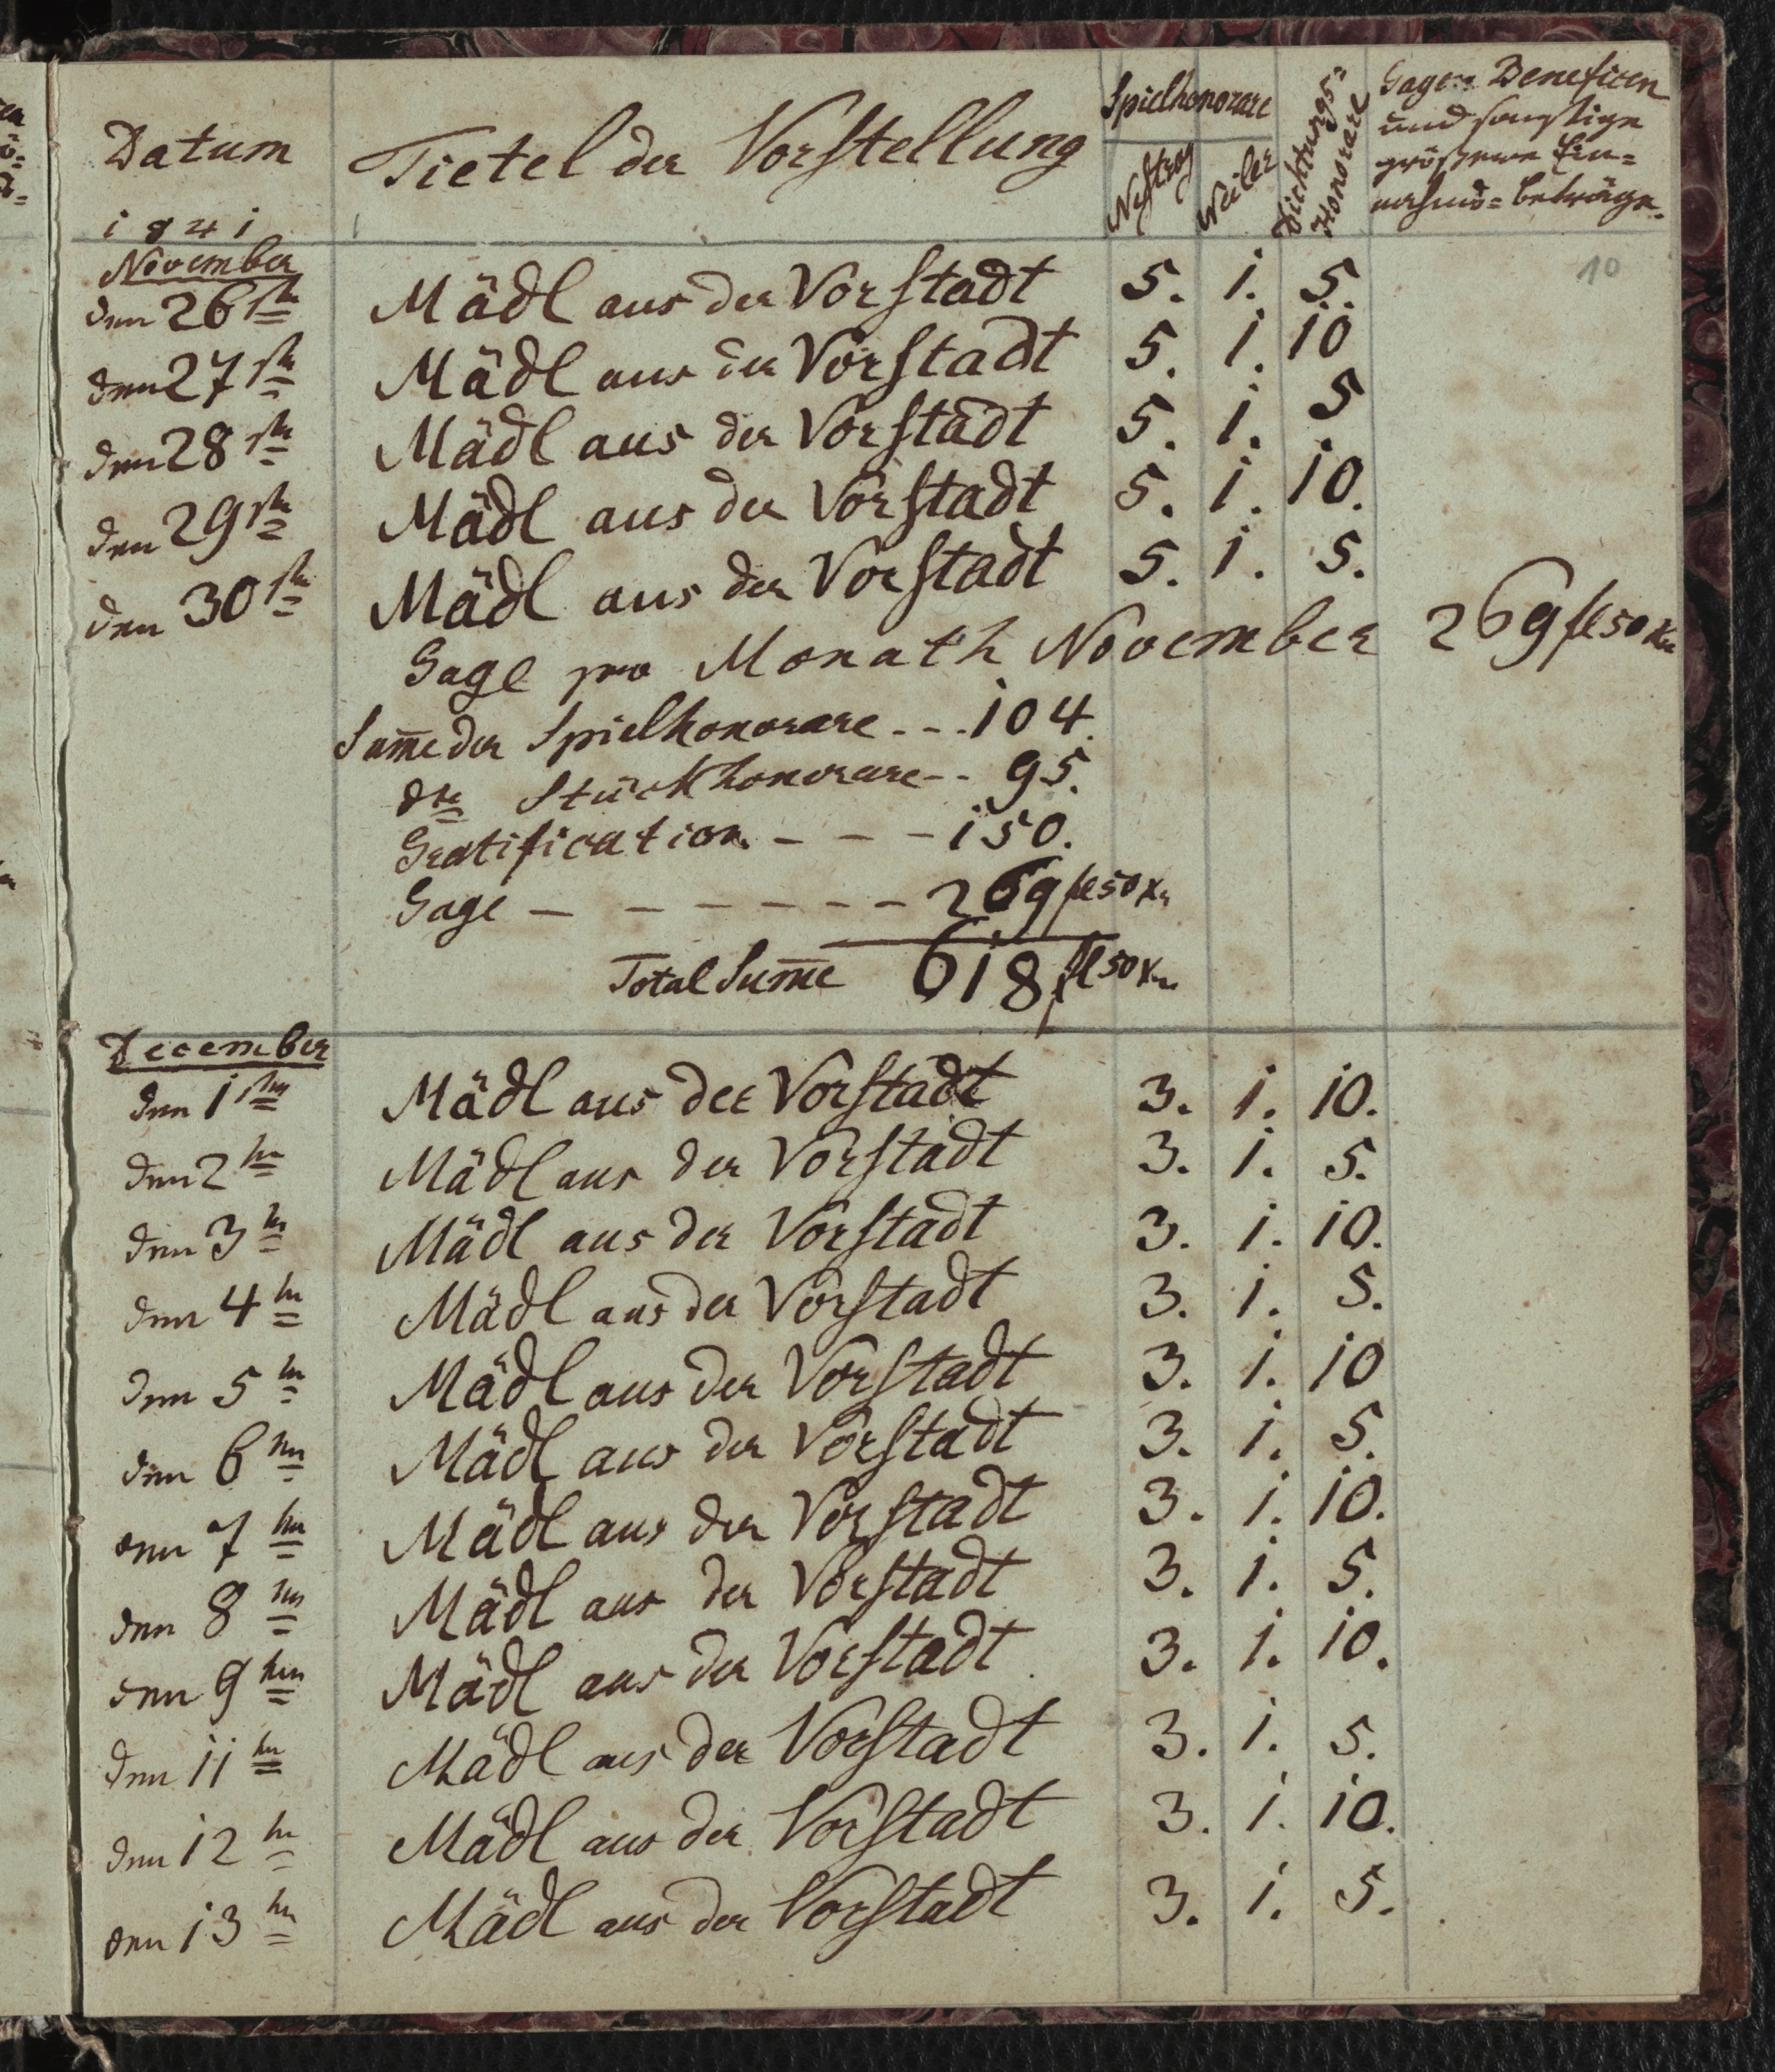 Datum
Tietel der Vorstellung
Spielhonorare
Nestroy
Weiler
Dichtungs-
Honorare
Gagen Beneficen
und sonstige
grössere Ein=
nahms=beträge.
1841
10
November
den 26ten Mädl aus der Vorstadt 5. 1. 5.
den 27ten Mädl aus der Vorstadt 5. 1. 10
den 28ten Mädl aus der Vorstadt 5. 1. 5
den 29ten Mädl aus der Vorstadt 5. 1. 10.
den 30ten Mädl aus der Vorstadt 5. 1. 5.
Gage pro Monath November 269 fl 50 Kr
Sum̅e der Spielhonorare - - - 104.
dto Stückhonorare - - 95.
Gratification. - - - 150.
Gage - - - - - - - 269 fl 50 Kr
Total Sum̅e 618 fl 50 Kr
December
den 1sten Mädl aus der Vorstadt 3. 1. 10.
den 2ten Mädl aus der Vorstadt 3. 1. 5.
den 3ten Mädl aus der Vorstadt 3. 1. 10.
den 4ten Mädl aus der Vorstadt 3. 1. 5.
den 5ten Mädl aus der Vorstadt 3. 1. 10
den 6ten Mädl aus der Vorstadt 3. 1. 5.
den 7ten Mädl aus der Vorstadt 3. 1. 10.
den 8ten Mädl aus der Vorstadt 3. 1. 5.
den 9ten Mädl aus der Vorstadt 3. 1. 10.
den 11ten Mädl aus der Vorstadt 3. 1. 5.
den 12ten Mädl aus der Vorstadt 3. 1. 10.
den 13ten Mädl aus der Vorstadt 3. 1. 5.